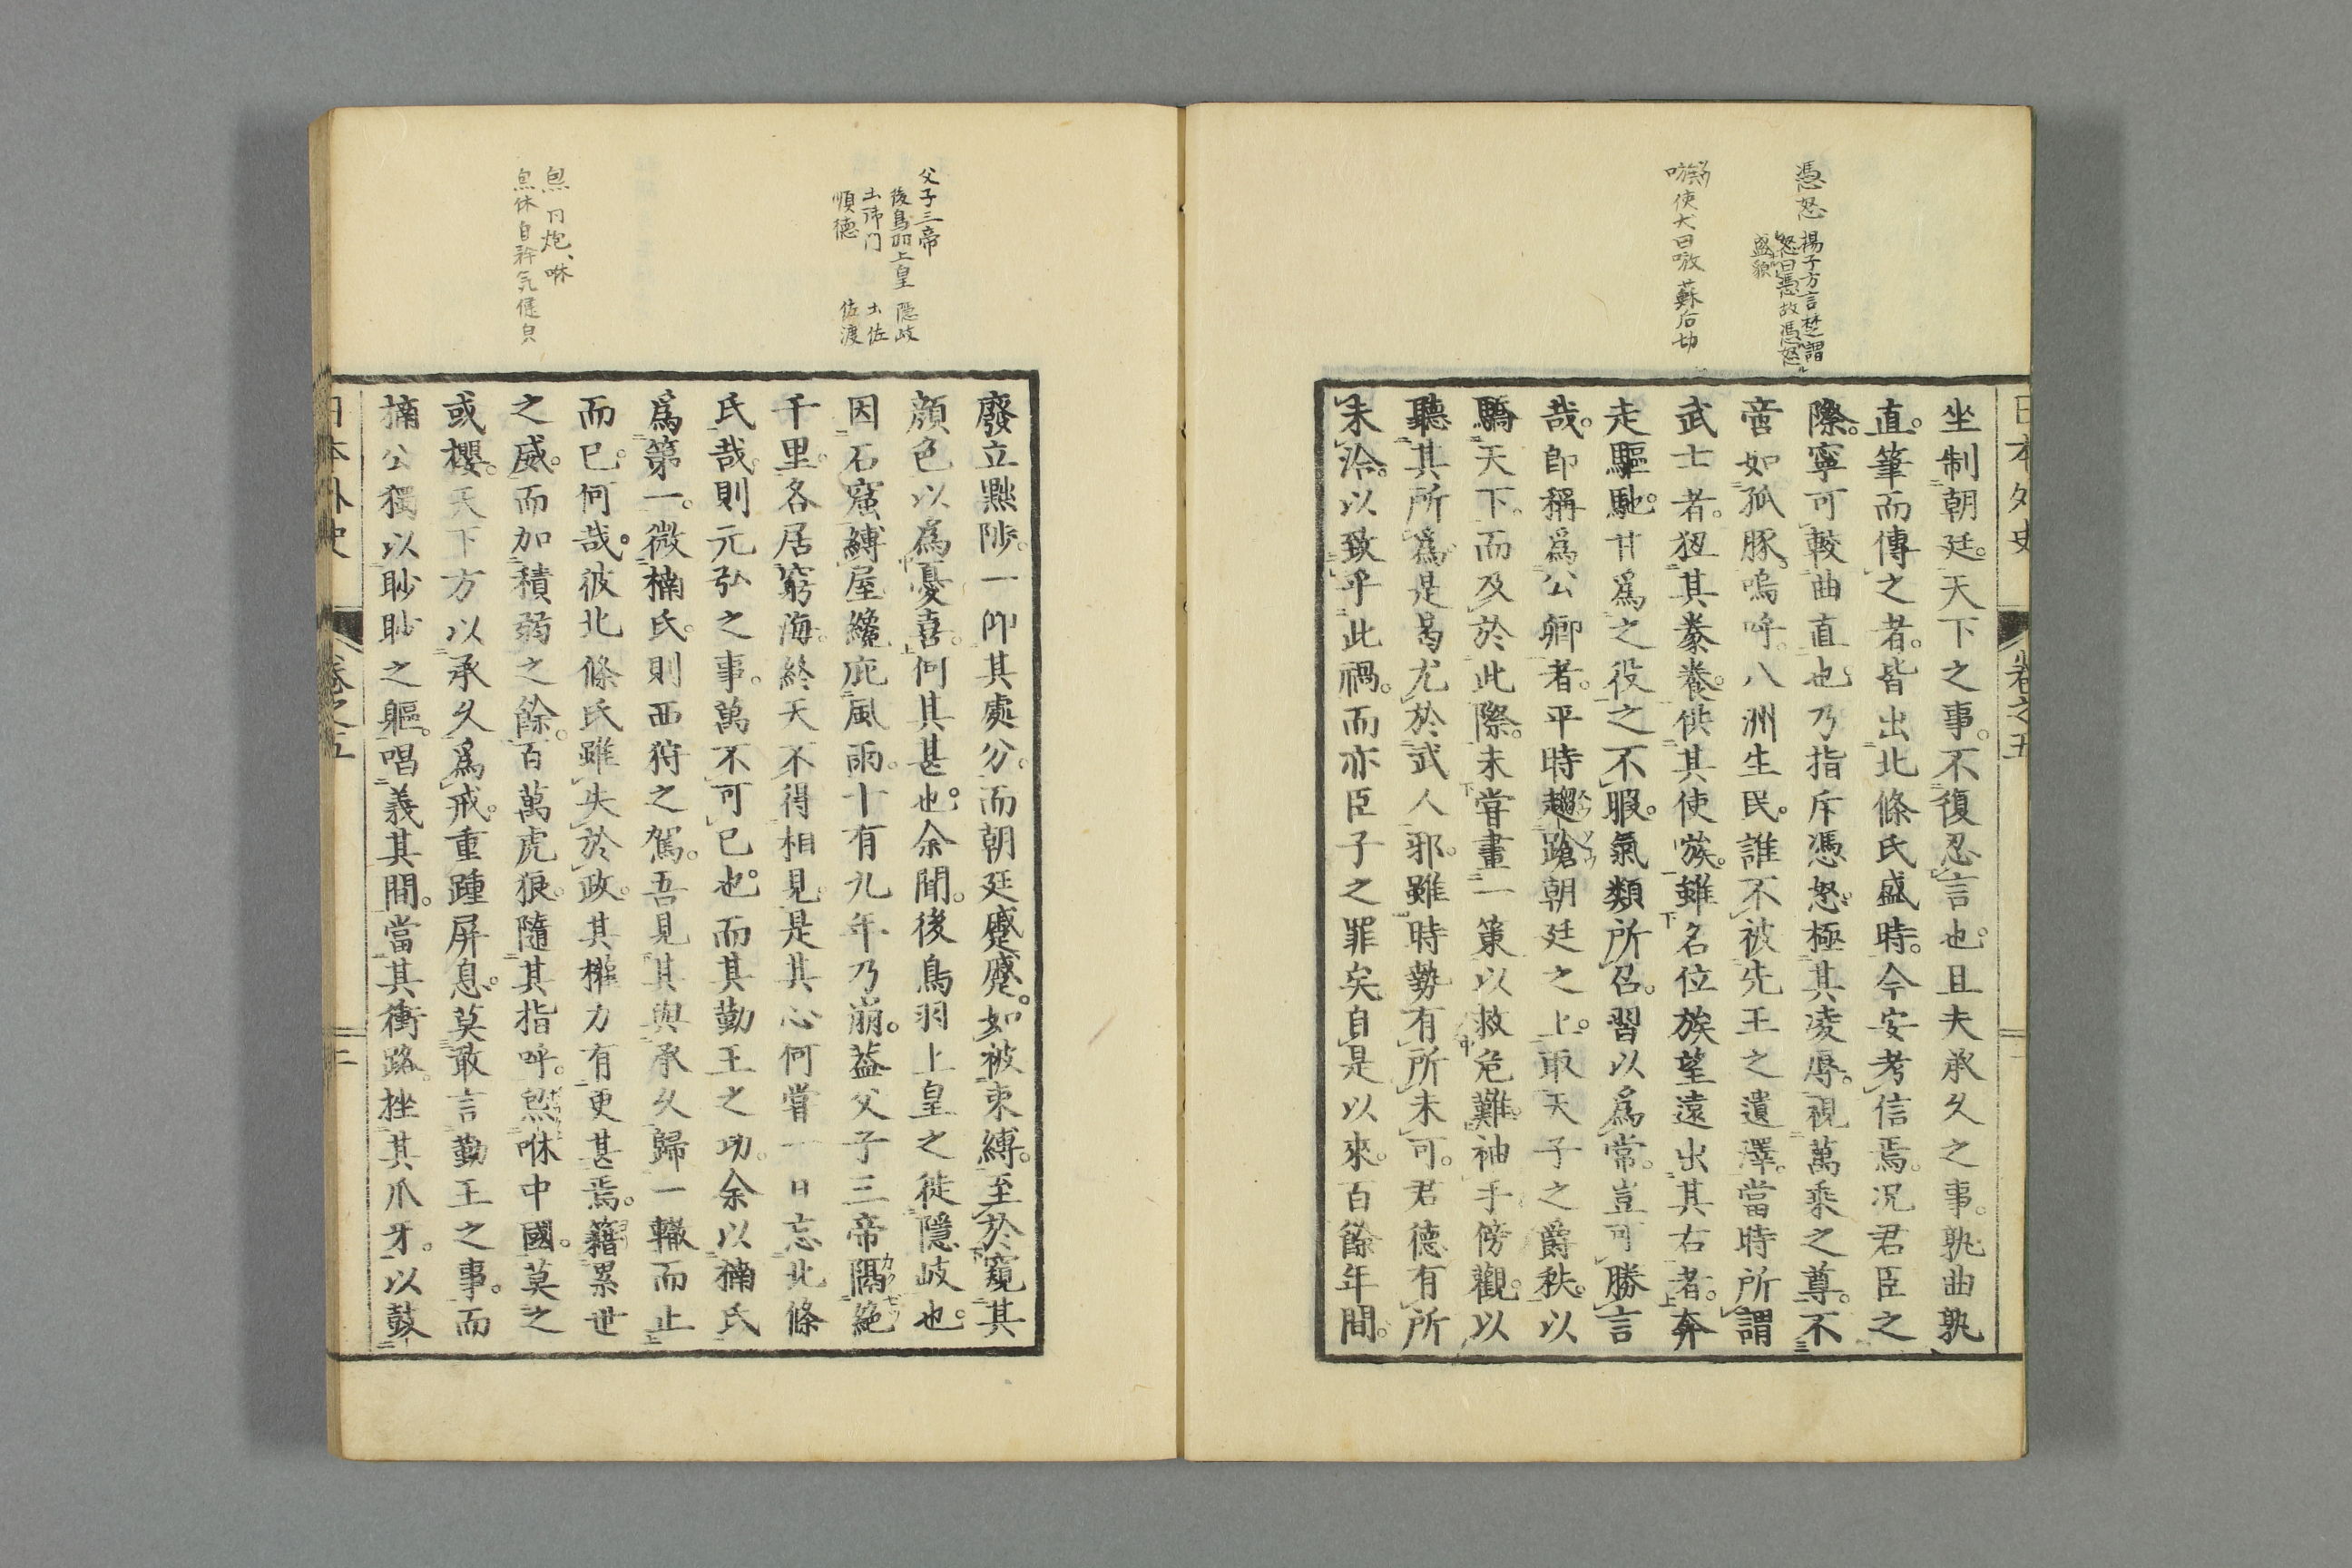 憑怒 楊子方言楚謂
怒曰憑故憑怒
盛貌
嗾使犬曰嗾 蘇后切
日本外史 卷之五
坐制朝廷。天下之事。不復忍言也。且夫承久之事。孰曲孰
直。筆而傳之者。皆出北條氏盛時。今安考信焉。況君臣之
際。寧可較曲直也。乃指斥憑怒。極其凌辱。視萬乘之尊。不
啻如孤豚。嗚呼。八洲生民。誰不被先王之遺澤。當時所謂
武士者。狃其豢養。供其使嗾。雖名位族望遠出其右者。奔
走驅馳。甘爲之役之不暇。氣類所召。習以爲常。豈可勝言
哉。即稱爲公卿者。平時趨蹌朝廷之上。取天子之爵秩。以
驕天下。而及於此際。未嘗畫一策以救危難。袖手傍觀。以
聽其所爲。是曷尤於武人邪。雖時勢有所未可。君德有所
未洽。以致乎此禍。而亦臣子之罪矣。自是以來。百餘年間。
父子三帝
後鳥羽上皇 隱岐
土御门 土佐
順德 佐渡
炰 咆、咻
炰休自矜气健皃
廢立黜陟。一仰其處分。而朝廷蹙蹙。如被束縛。至於窺其
顏色以爲憂喜。何其甚也。余聞。後鳥羽上皇之徙隱岐也。
因石窟縛屋。纔庇風雨。十有九年乃崩。蓋父子三帝隔絕
千里。各居窮海。終天不得相見。是其心何嘗一日忘北條
氏哉。則元弘之事。萬不可已也。而其勤王之功。余以楠氏
爲第一。微楠氏。則西狩之駕。吾見其與承久歸一轍而止
而已。何哉。彼北條氏雖失於政。其權力有更甚焉。籍累世
之威。而加積弱之餘。百萬虎狼。隨其指呼。炰咻中國。莫之
或攖。天下方以承久爲戒。重踵屏息。莫敢言勤王之事。而
楠公獨以眇眇之軀。唱義其間。當其衝路。挫其爪牙。以鼓
日本外史 卷之五 二